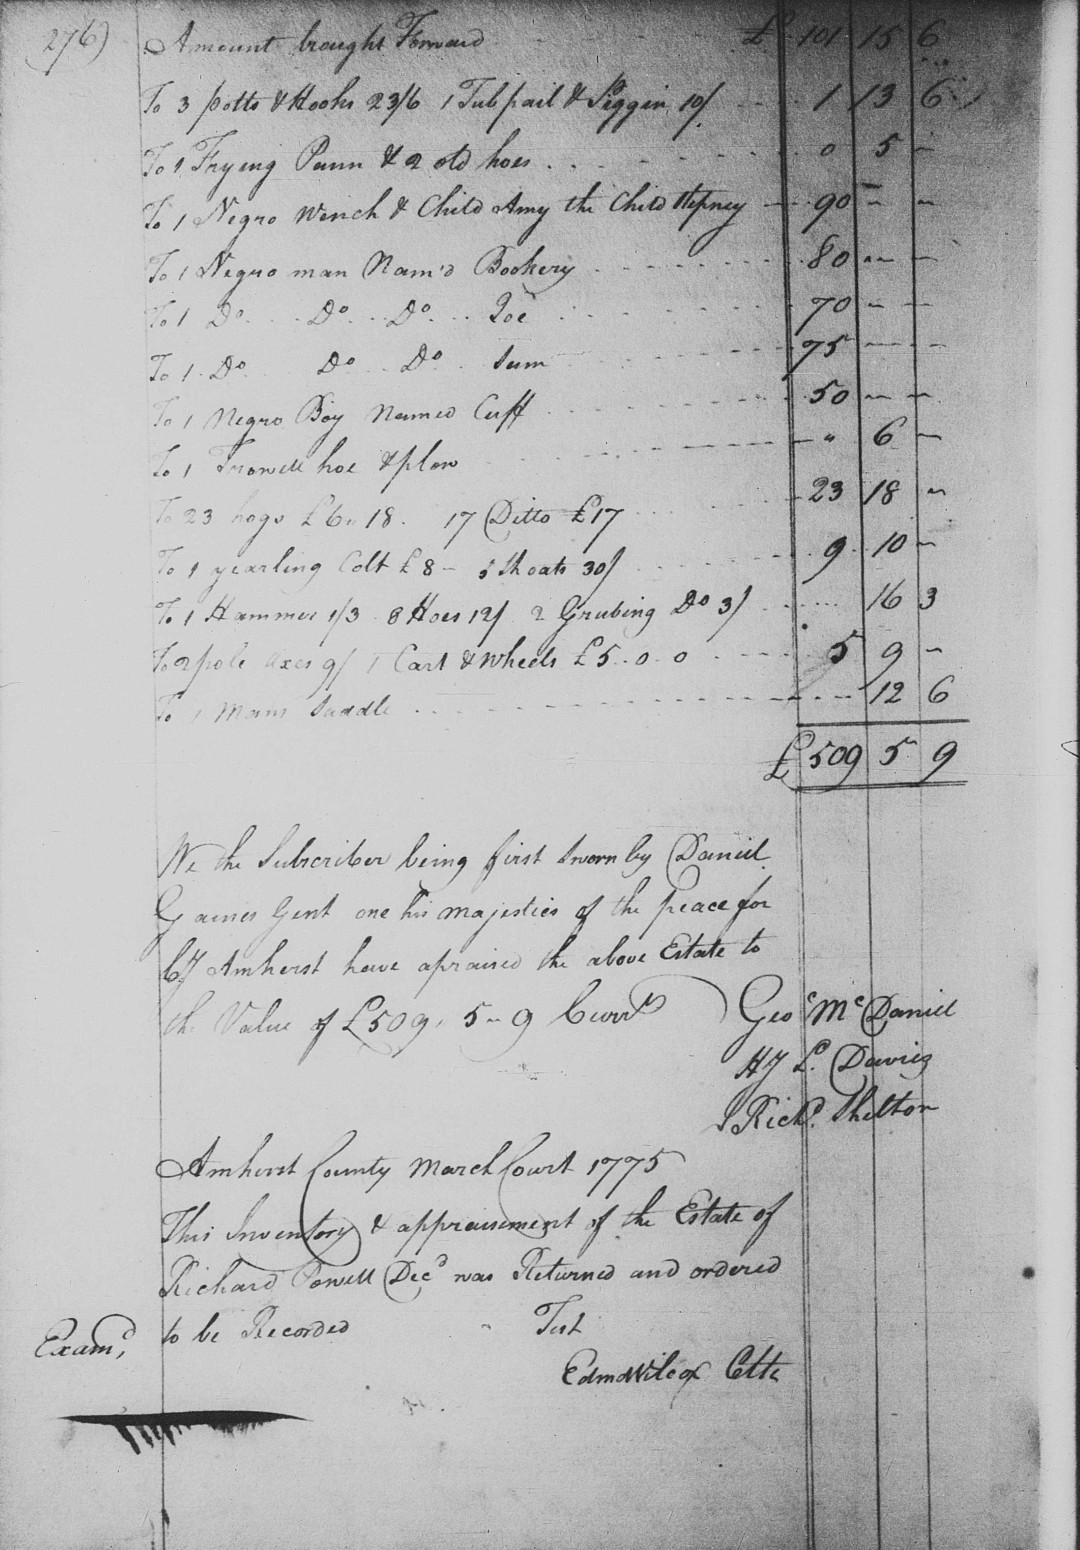 276) Amount brought Forward £ 101 15 6
To 3 potts & Hooks 23/6 1 Tub pail & Piggin 10/ 1 13 6
To 1 Frying Pann & 2 old hoes 0 5 —
To 1 Negro Wench & Child Amy the Child 90 — —
To 1 Negro man Nam'd Bookery 80 — —
To 1 Do Do Do Joe 70 — —
To 1 Do Do Do Sam 75 — —
To 1 Negro Boy Named Cuff 50 — —
To 1 Trowell hoe & plow " 6 —
To 23 hogs £6 " 18. 17 Ditto £17 23 18 —
To 1 yearling Colt £8 — 5 Shoats 30/ 9 10 —
To 1 Hammer 1/3 8 Hoes 12/ 2 Grubing Do 3/ 16 3
To 2 pole axes 9/ 1 Cart & Wheels £5..0..0 5 9 —
To 1 Mans Saddle 12 6
£ 509 5 9
We the Subscriber being first Sworn by Daniel
Gaines Gent one his majesties of the peace for
Cy Amherst have apraised the above Estate to
the Value of £509, 5 " 9 Currcy
Geo McDaniel
Hy L. Davies
Richd. Shelton
Amherst County March Court 1775
This Inventory & appraisement of the Estate of
Richard Powell Decd was Returned and ordered
to be Recorded Test
Examd,
Edmd Wilcox Clk